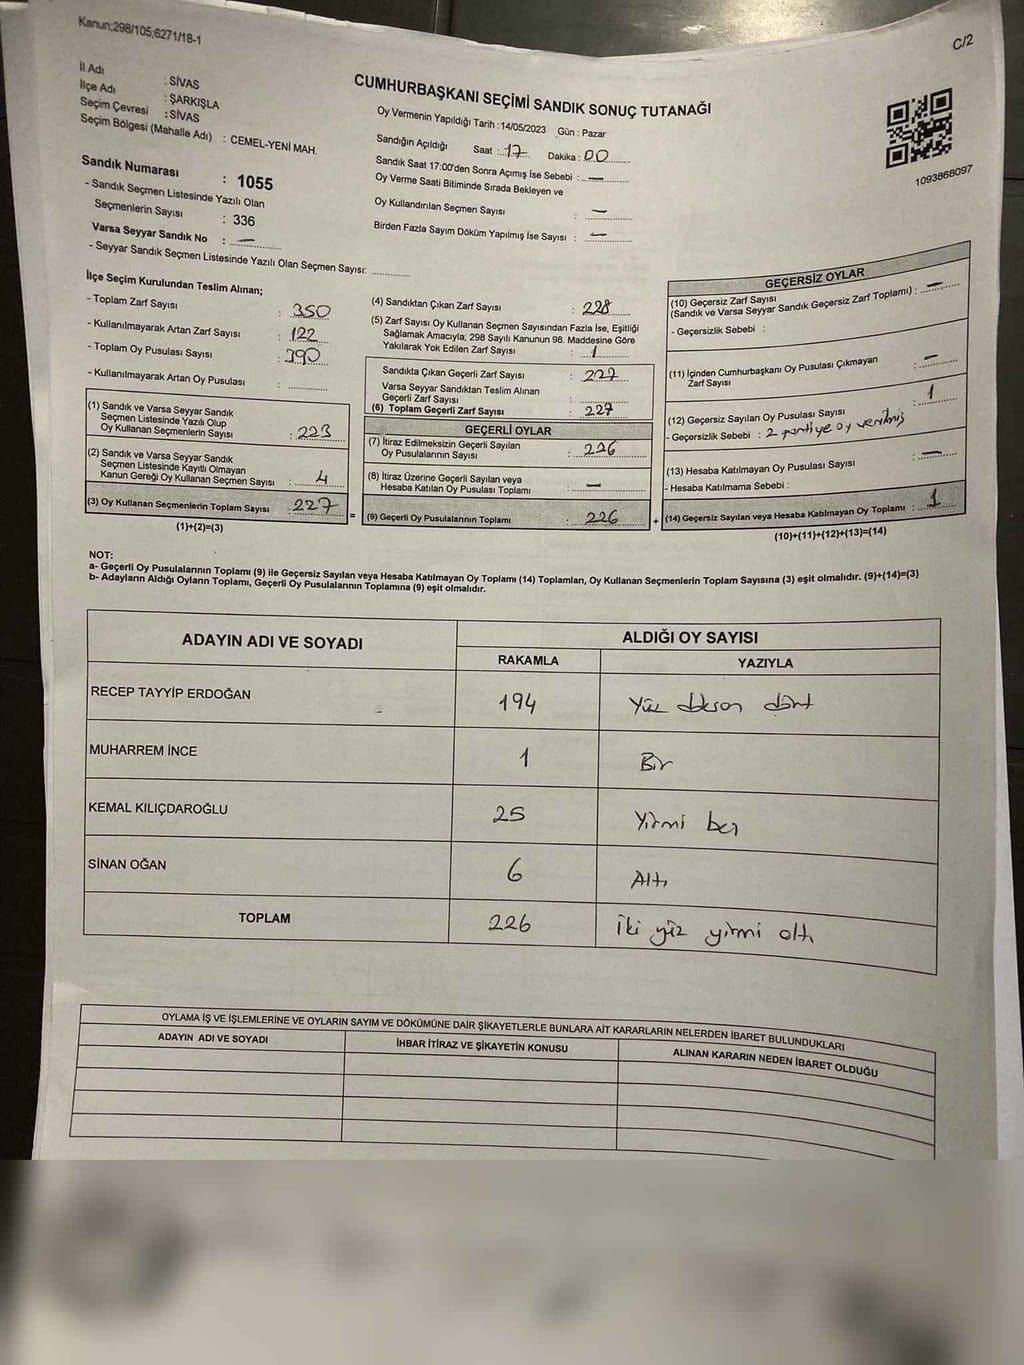 Kanun;298/105;6271/18-1
C/2
İl Adı : SİVAS
İlçe Adı : ŞARKIŞLA
Seçim Çevresi : SİVAS
Seçim Bölgesi (Mahalle Adı) : CEMEL-YENİ MAH.
CUMHURBAŞKANI SEÇİMİ SANDIK SONUÇ TUTANAĞI
Oy Vermenin Yapıldığı Tarih : 14/05/2023 Gün : Pazar
Sandığın Açıldığı Saat : 17 Dakika : 00
Sandık Saat 17:00'den Sonra Açımış İse Sebebi : —
Oy Verme Saati Bitiminde Sırada Bekleyen ve
Oy Kullandırılan Seçmen Sayısı : —
Birden Fazla Sayım Döküm Yapılmış İse Sayısı : —
1093868097
Sandık Numarası : 1055
- Sandık Seçmen Listesinde Yazılı Olan
Seçmenlerin Sayısı : 336
Varsa Seyyar Sandık No : —
- Seyyar Sandık Seçmen Listesinde Yazılı Olan Seçmen Sayısı: ............
İlçe Seçim Kurulundan Teslim Alınan;
- Toplam Zarf Sayısı : 350
- Kullanılmayarak Artan Zarf Sayısı : 122
- Toplam Oy Pusulası Sayısı : 390
- Kullanılmayarak Artan Oy Pusulası : ............
(1) Sandık ve Varsa Seyyar Sandık
Seçmen Listesinde Yazılı Olup
Oy Kullanan Seçmenlerin Sayısı : 223
(2) Sandık ve Varsa Seyyar Sandık
Seçmen Listesinde Kayıtlı Olmayan
Kanun Gereği Oy Kullanan Seçmen Sayısı : 4
(3) Oy Kullanan Seçmenlerin Toplam Sayısı : 227
(1)+(2)=(3)
(4) Sandıktan Çıkan Zarf Sayısı : 228
(5) Zarf Sayısı Oy Kullanan Seçmen Sayısından Fazla İse, Eşitliği
Sağlamak Amacıyla; 298 Sayılı Kanunun 98. Maddesine Göre
Yakılarak Yok Edilen Zarf Sayısı : 1
Sandıkta Çıkan Geçerli Zarf Sayısı : 227
Varsa Seyyar Sandıktan Teslim Alınan
Geçerli Zarf Sayısı : ............
(6) Toplam Geçerli Zarf Sayısı : 227
GEÇERLİ OYLAR
(7) İtiraz Edilmeksizin Geçerli Sayılan
Oy Pusulalarının Sayısı : 226
(8) İtiraz Üzerine Geçerli Sayılan veya
Hesaba Katılan Oy Pusulası Toplamı : —
= (9) Geçerli Oy Pusulalarının Toplamı : 226 +
GEÇERSİZ OYLAR
(10) Geçersiz Zarf Sayısı
(Sandık ve Varsa Seyyar Sandık Geçersiz Zarf Toplamı) : —
- Geçersizlik Sebebi :
(11) İçinden Cumhurbaşkanı Oy Pusulası Çıkmayan
Zarf Sayısı : —
(12) Geçersiz Sayılan Oy Pusulası Sayısı : 1
- Geçersizlik Sebebi : 2 partiye oy verilmiş
(13) Hesaba Katılmayan Oy Pusulası Sayısı : —
- Hesaba Katılmama Sebebi :
(14) Geçersiz Sayılan veya Hesaba Katılmayan Oy Toplamı : 1
(10)+(11)+(12)+(13)=(14)
NOT:
a- Geçerli Oy Pusulalarının Toplamı (9) ile Geçersiz Sayılan veya Hesaba Katılmayan Oy Toplamı (14) Toplamları, Oy Kullanan Seçmenlerin Toplam Sayısına (3) eşit olmalıdır. (9)+(14)=(3)
b- Adayların Aldığı Oyların Toplamı, Geçerli Oy Pusulalarının Toplamına (9) eşit olmalıdır.
ADAYIN ADI VE SOYADI ALDIĞI OY SAYISI
RAKAMLA YAZIYLA
RECEP TAYYİP ERDOĞAN 194 Yüz doksan dört
MUHARREM İNCE 1 Bir
KEMAL KILIÇDAROĞLU 25 Yirmi beş
SİNAN OĞAN 6 Altı
TOPLAM 226 İki yüz yirmi altı
OYLAMA İŞ VE İŞLEMLERİNE VE OYLARIN SAYIM VE DÖKÜMÜNE DAİR ŞİKAYETLERLE BUNLARA AİT KARARLARIN NELERDEN İBARET BULUNDUKLARI
ADAYIN ADI VE SOYADI İHBAR İTİRAZ VE ŞİKAYETİN KONUSU ALINAN KARARIN NEDEN İBARET OLDUĞU